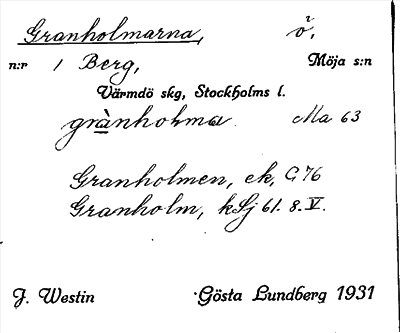 Granholmarna, ö i.
n:r 1 Berg, Möja s:n
Värmdö skg, Stockholms l.
grànholma Ma 63
Granholmen, ek, G 76
Granholm, kSj 61. 8. V.
J. Westin Gösta Lundberg 1931